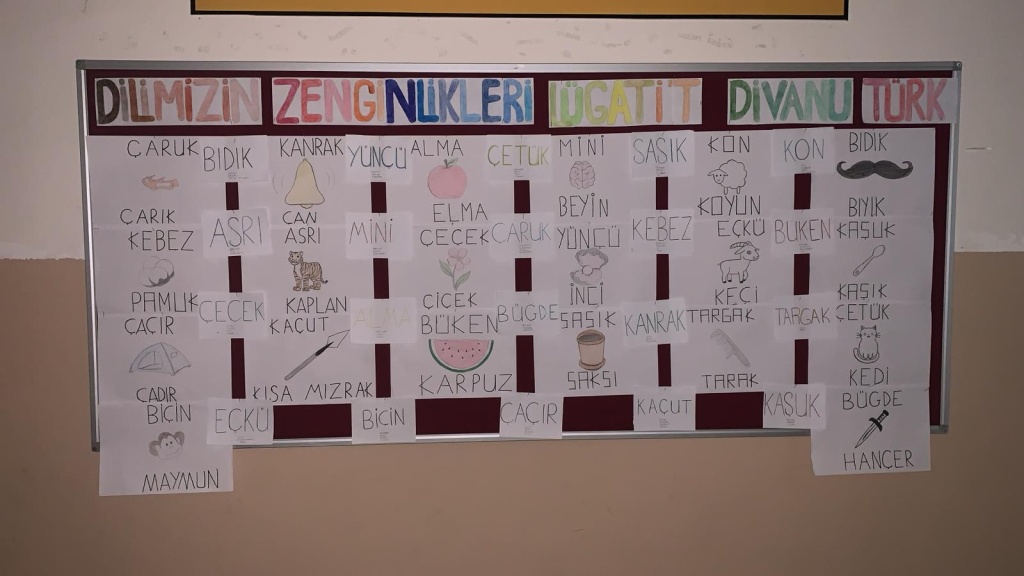 DİLİMİZİN ZENGİNLİKLERİ LÜGATİT DİVANU TÜRK
ÇARUK BIDIK KANRAK YÜNÇÜ ALMA ÇETÜK MİNİ SAŞIK KON KON BIDIK
ÇARIK ÇAN ELMA BEYİN KOYUN BIYIK
KEBEZ ASRI ASRI MİNİ ÇEÇEK ÇARUK YÜNÇÜ KEBEZ EÇKÜ BUKEN KAŞUK
PAMUK KAPLAN ÇİÇEK İNCİ KEÇİ KAŞIK
ÇAÇIR ÇEÇEK KAÇUT ALMA BÜKEN BÜGDE SAŞIK KANRAK TARGAK TARGAK ÇETÜK
ÇADIR KISA MIZRAK KARPUZ SAKSI TARAK KEDİ
BİÇİN EÇKÜ BİÇİN ÇAÇIR KAÇUT KAŞUK BÜGDE
MAYMUN HANÇER